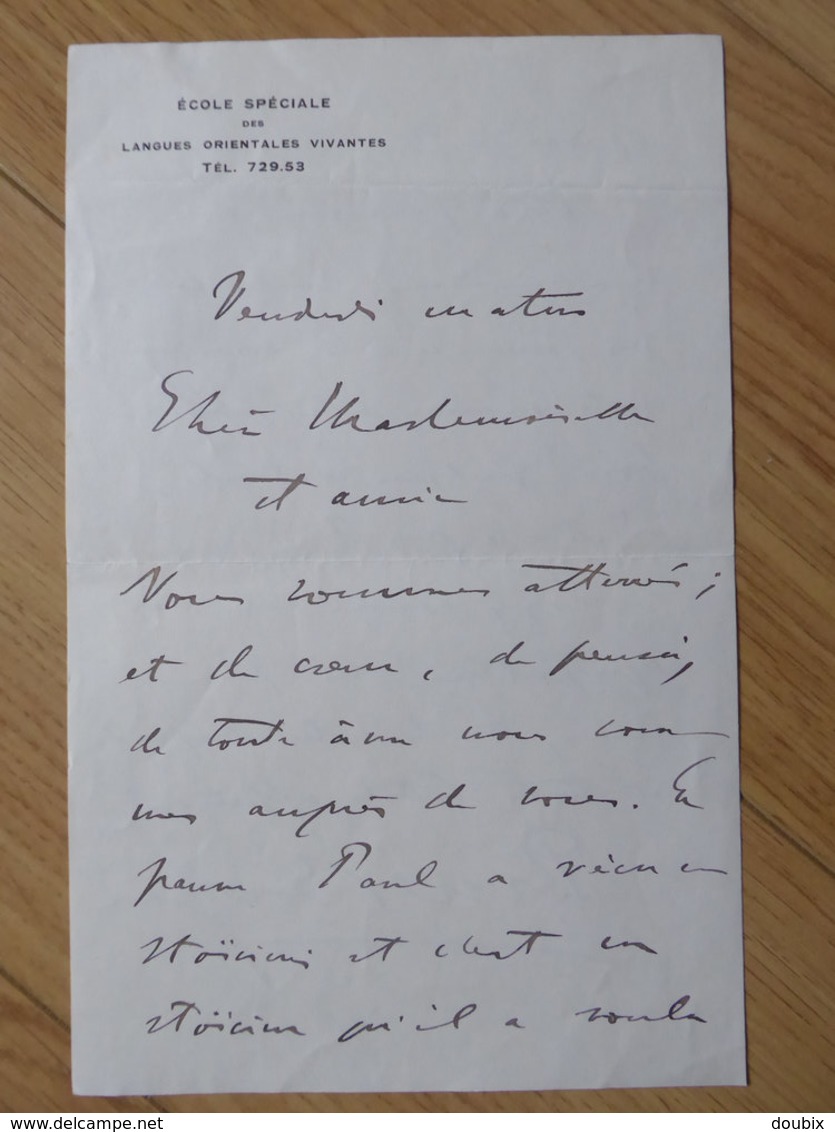 ÉCOLE SPÉCIALE
DES
LANGUES ORIENTALES VIVANTES
TÉL. 729.53
Vendredi matin
Chère Mademoiselle
et amie
Nous sommes atterrés;
et de cœur, de pensée,
de toute âme nous som
mes auprès de vous. Ce
pauvre Paul a vécu en
stoïcien et c'est en
stoïcien qu'il a voulu
delcampe.net
doubix